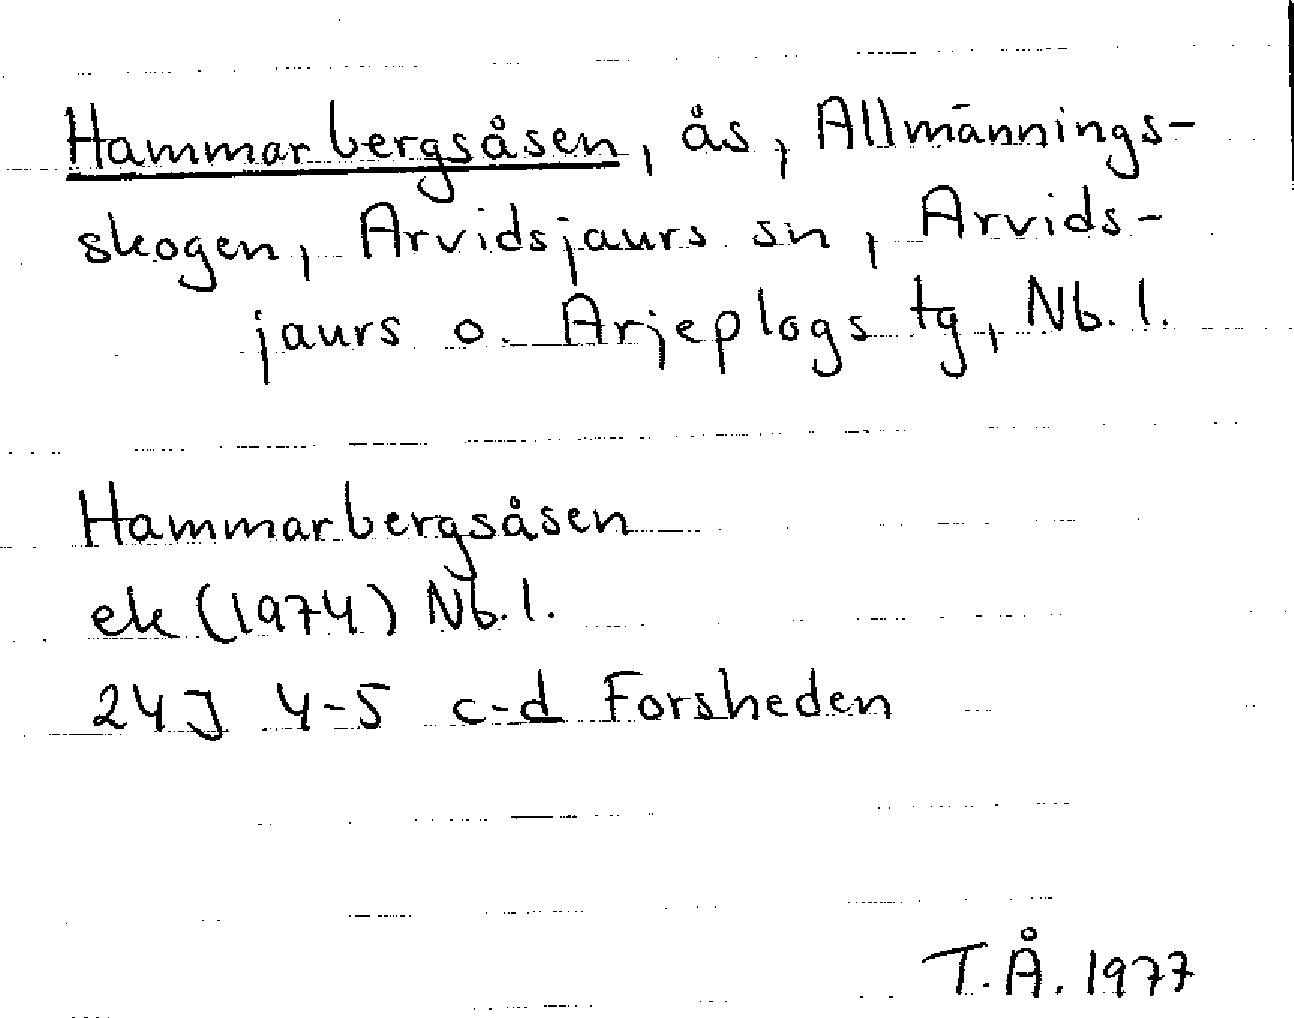 Hammarbergsåsen, ås, Allmännings-
skogen, Arvidsjaurs sn, Arvids-
jaurs o. Arjeplogs tg, Nb. l.
Hammarbergsåsen
ek (1974) Nb. l.
24J 4-5 c-d Forsheden
T.Å. 1977